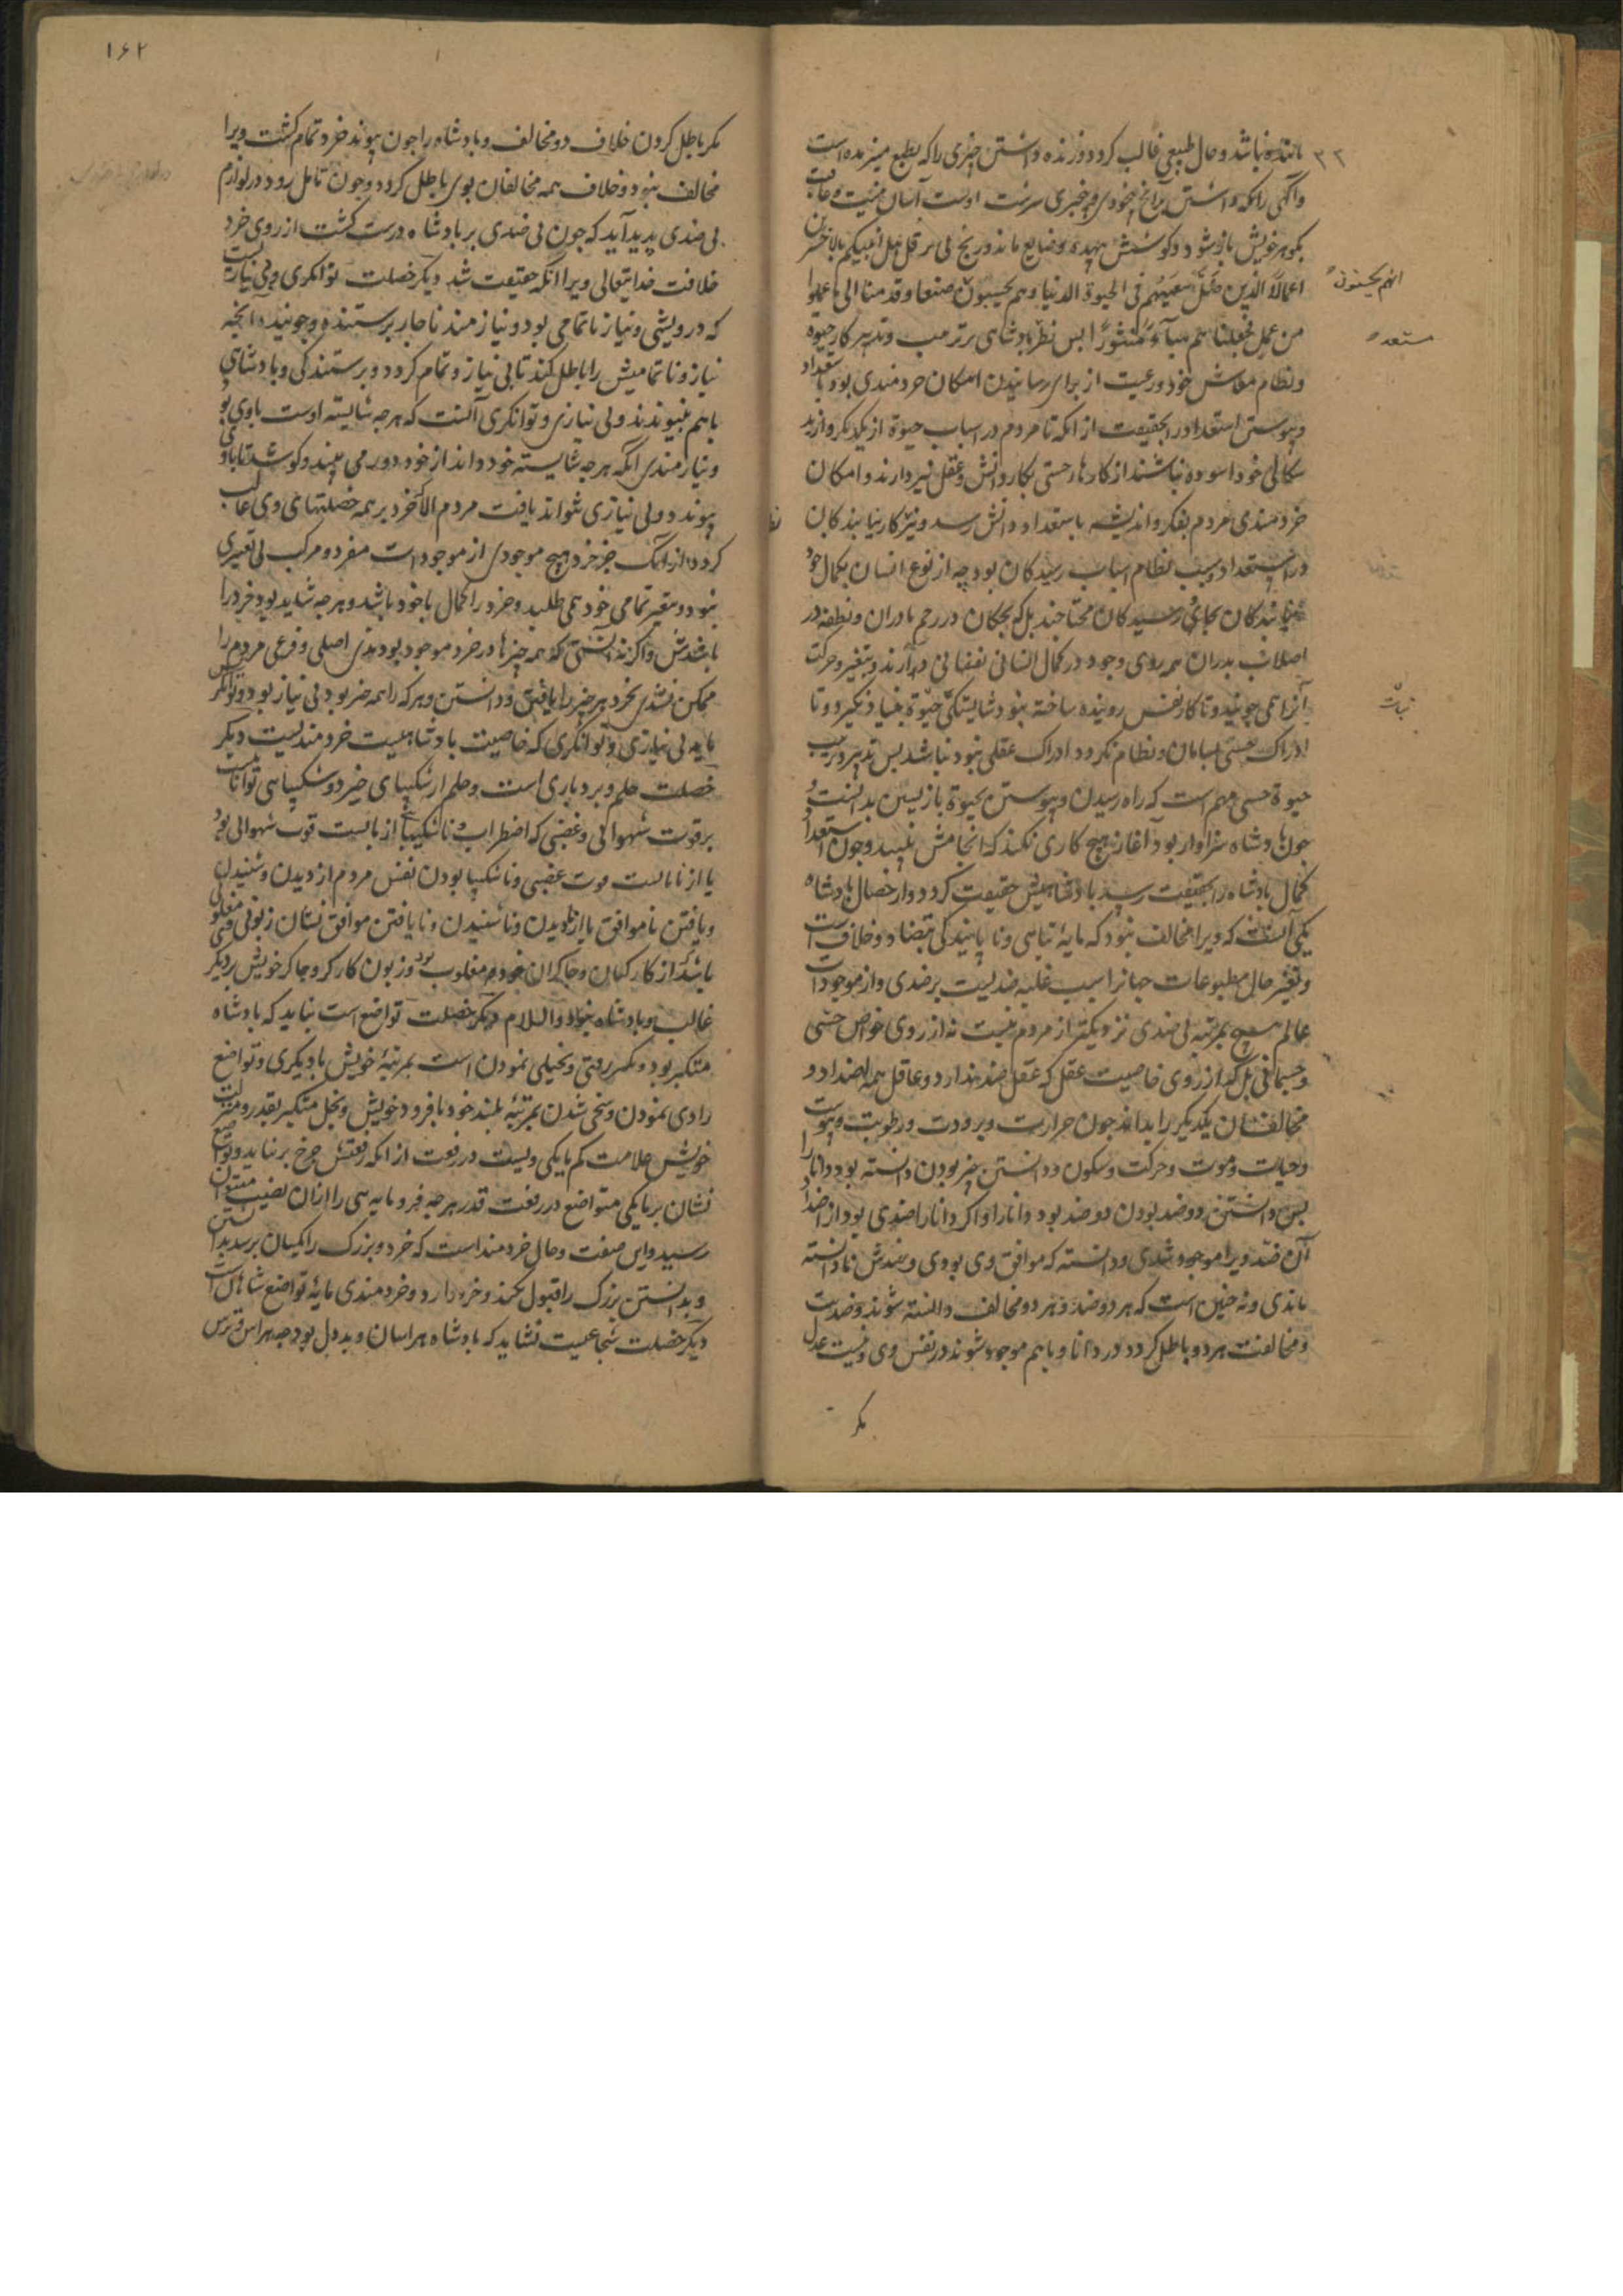 مانده نباشد و حال طبیعی غالب کردد و زنده داشتن چیزی را که بطبع میرنده است
و آگهی را که داشتن برانچ خودی و بیخبری سرشت اوست آسان نیست و عاقبت
بکوهر خویش باز شود و کوشش بیهده و ضایع ماند و رنج بی بر قل هل انبئکم بالاخسرین
اعمالا الذین ضل سعیهم فی الحیوة الدنیا وهم یحسبون صنعا وقدمنا الی ما عملوا
انهم یحسنون
من عمل فجعلناهم هباء منثورا بس نظر بادشاهی بر ترتیب و تدبیر کار حیوة
مستعده
و نظام معاش خود و رعیت از برای رسانیدن امکان خردمندی بود باستعداد
و پیوستن استعداد بحقیقت از انکه تا مردم در اسباب حیوة از یکدیکر و از بد
سکالی خود اسوده نباشند از کارهای حسی بکار دانش و عقل نپردازند و امکان
خردمندی مردم بفکر و اندیشه باستعداد دانش رسد و نیز کار نیابندکان
در استعداد سبب نظام اسباب رسیدکان بود چه از نوع انسان بکمال خود
نیابندکان بجای رسیدکان محتاجند بل که بچکان در رحم مادران و نطفه در
اصلاب پدران همه روی وجود در کمال انسانی نفسانی دارند و بتغیر و حرکت
آنرا همی جویند و تا کار نفس روینده ساخته نبود شایستکی حیوة بنیاد نکیرد و تا
نباتی
ادراک حسی بسامان و نظام نکردد ادراک عقلی نبود نباشد بس تدبیر و ترتیب
حیوة حسی مهم است که راه رسیدن و پیوستن بحیوة بازپسین بدانست و
چون پادشاه سزاوار بود آغاز هیچ کاری نکند که انجامش نبیند و چون استعداد
کمال بادشاه را بحقیقت رسید بادشاهیش حقیقت کردد و از خصال بادشاه
یکی آنست که ویرا مخالف نبود که مایه تباهی و ناپایندکی تضاد و خلاف است
و تغیر حال مطبوعات جهانرا سبب غلبه ضدیست بر ضدی و از موجودات
عالم هیچ بمرتبه بی ضدی نزدیکتر از مردم نیست نه از روی خواص حسی
و جسمانی بل که از روی خاصیت عقل که عقل ضد ندارد و عاقل همه اضداد و
مخالفان یکدیکر را بداند چون حرارت و برودت و رطوبت و یبوست
و حیات و موت و حرکت و سکون و دانستن چیز بودن دانسته بود دانا را
بس دانستن دو ضد بودن دو ضد بود دانا را و اکر دانا را ضدی بود از اضداد
آن ضد ویرا موجود شدی و دانسته که موافق وی بودی و ضدش نادانسته
ماندی و نه چنین است که هر دو ضد و هر دو مخالف دانسته شوند و ضدیت
و مخالفت هر دو باطل کردد در دانا و باهم موجود شوند در نفس وی و نیست عدل
مکر
۱۶۲
مکر باطل کردن خلاف دو مخالف و بادشاه را چون پیوند خرد تمام کشت ویرا
مخالف نبود و خلاف همه مخالفان بوی باطل کردد و چون تامل رود در لوازم
بی ضدی پدید آید که چون بی ضدی بر بادشاه درست کشت از روی خرد
خلافت خدایتعالی ویرا انکه حقیقت شد دیکر خصلت توانکری و بی نیازیست
که درویشی و نیاز ناتمامی بود و نیازمند ناچار پرستنده و جوینده آنچه
نیاز و ناتمامیش را باطل کند تا بی نیاز و تمام کردد و پرستندکی و بادشاهی
باهم نپیوندند و بی نیازی و توانکری آنست که هر چه شایسته اوست باوی بود
و نیازمندی انکه هر چه شایسته خود داند از خود دور می بیند و کوشد تا باوی
پیوندد و بی نیازی نتواند یافت مردم الا که خرد بر همه خصلتهای وی غالب
کردد از انک جز خرد هیچ موجودی از موجودات مفرد و مرکب بی تغیری
نبود و متغیر تمامی خود همی طلبد و خرد را کمال با خود باشد و هر چه شاید بود خرد را
باشدش و اکر نه آنستی که همه چیزها در خرد موجود بودندی اصلی و فرعی مردم را
ممکن نشدی بخرد هر چیز را یافتن و دانستن و هر که را همه چیز بود بی نیاز بود و توانکر بس
پایه بی نیازی و توانکری که خاصیت بادشاهیست خردمندیست دیکر
خصلت حلم و بردباری است و حلم از شکیبای خیزد و شکیبایی توانایست
بر قوت شهوانی و غضبی که اضطراب و ناشکیبایی از بایست قوت شهوانی بود
یا از نابایست قوت غضبی و ناشکیبا بودن نفس مردم از دیدن و شنیدن
و یافتن ناموافق یا از نادیدن و ناشنیدن و نایافتن موافق نشان زبونی و مغلوبی
باشد از کارکنان و چاکران خود و مغلوب بود و زبون کارکر و چاکر خویش بر دیکر
غالب و بادشاه نبود والسلام دیکر خصلت تواضع است نباید که بادشاه
متکبر بود و تکبر زفتی و بخیلی نمودن است بمرتبۀ خویش با دیکری و تواضع
رادی نمودن و سخی شدن بمرتبۀ بلند خود با فرود خویش و بخل متکبر بقدر و مرتبت
خویش علامت کم مایکیست در رفعت از انکه رفعتش خرج بر نتابد و تواضع
نشان پرمایکی متواضع در رفعت قدر هر چه فرومایه سی را از ان نصیب بتوان
رسید و این صفت و حال خردمند است که خرد و بزرک را یکسان برسد بدانستن
و بدانستن بزرک را قبول کند و خرد دارد و خردمندی مایۀ تواضع شاهان است
دیکر خصلت شجاعیست نشاید که بادشاه هراسان و بددل بود چه هراس و ترس